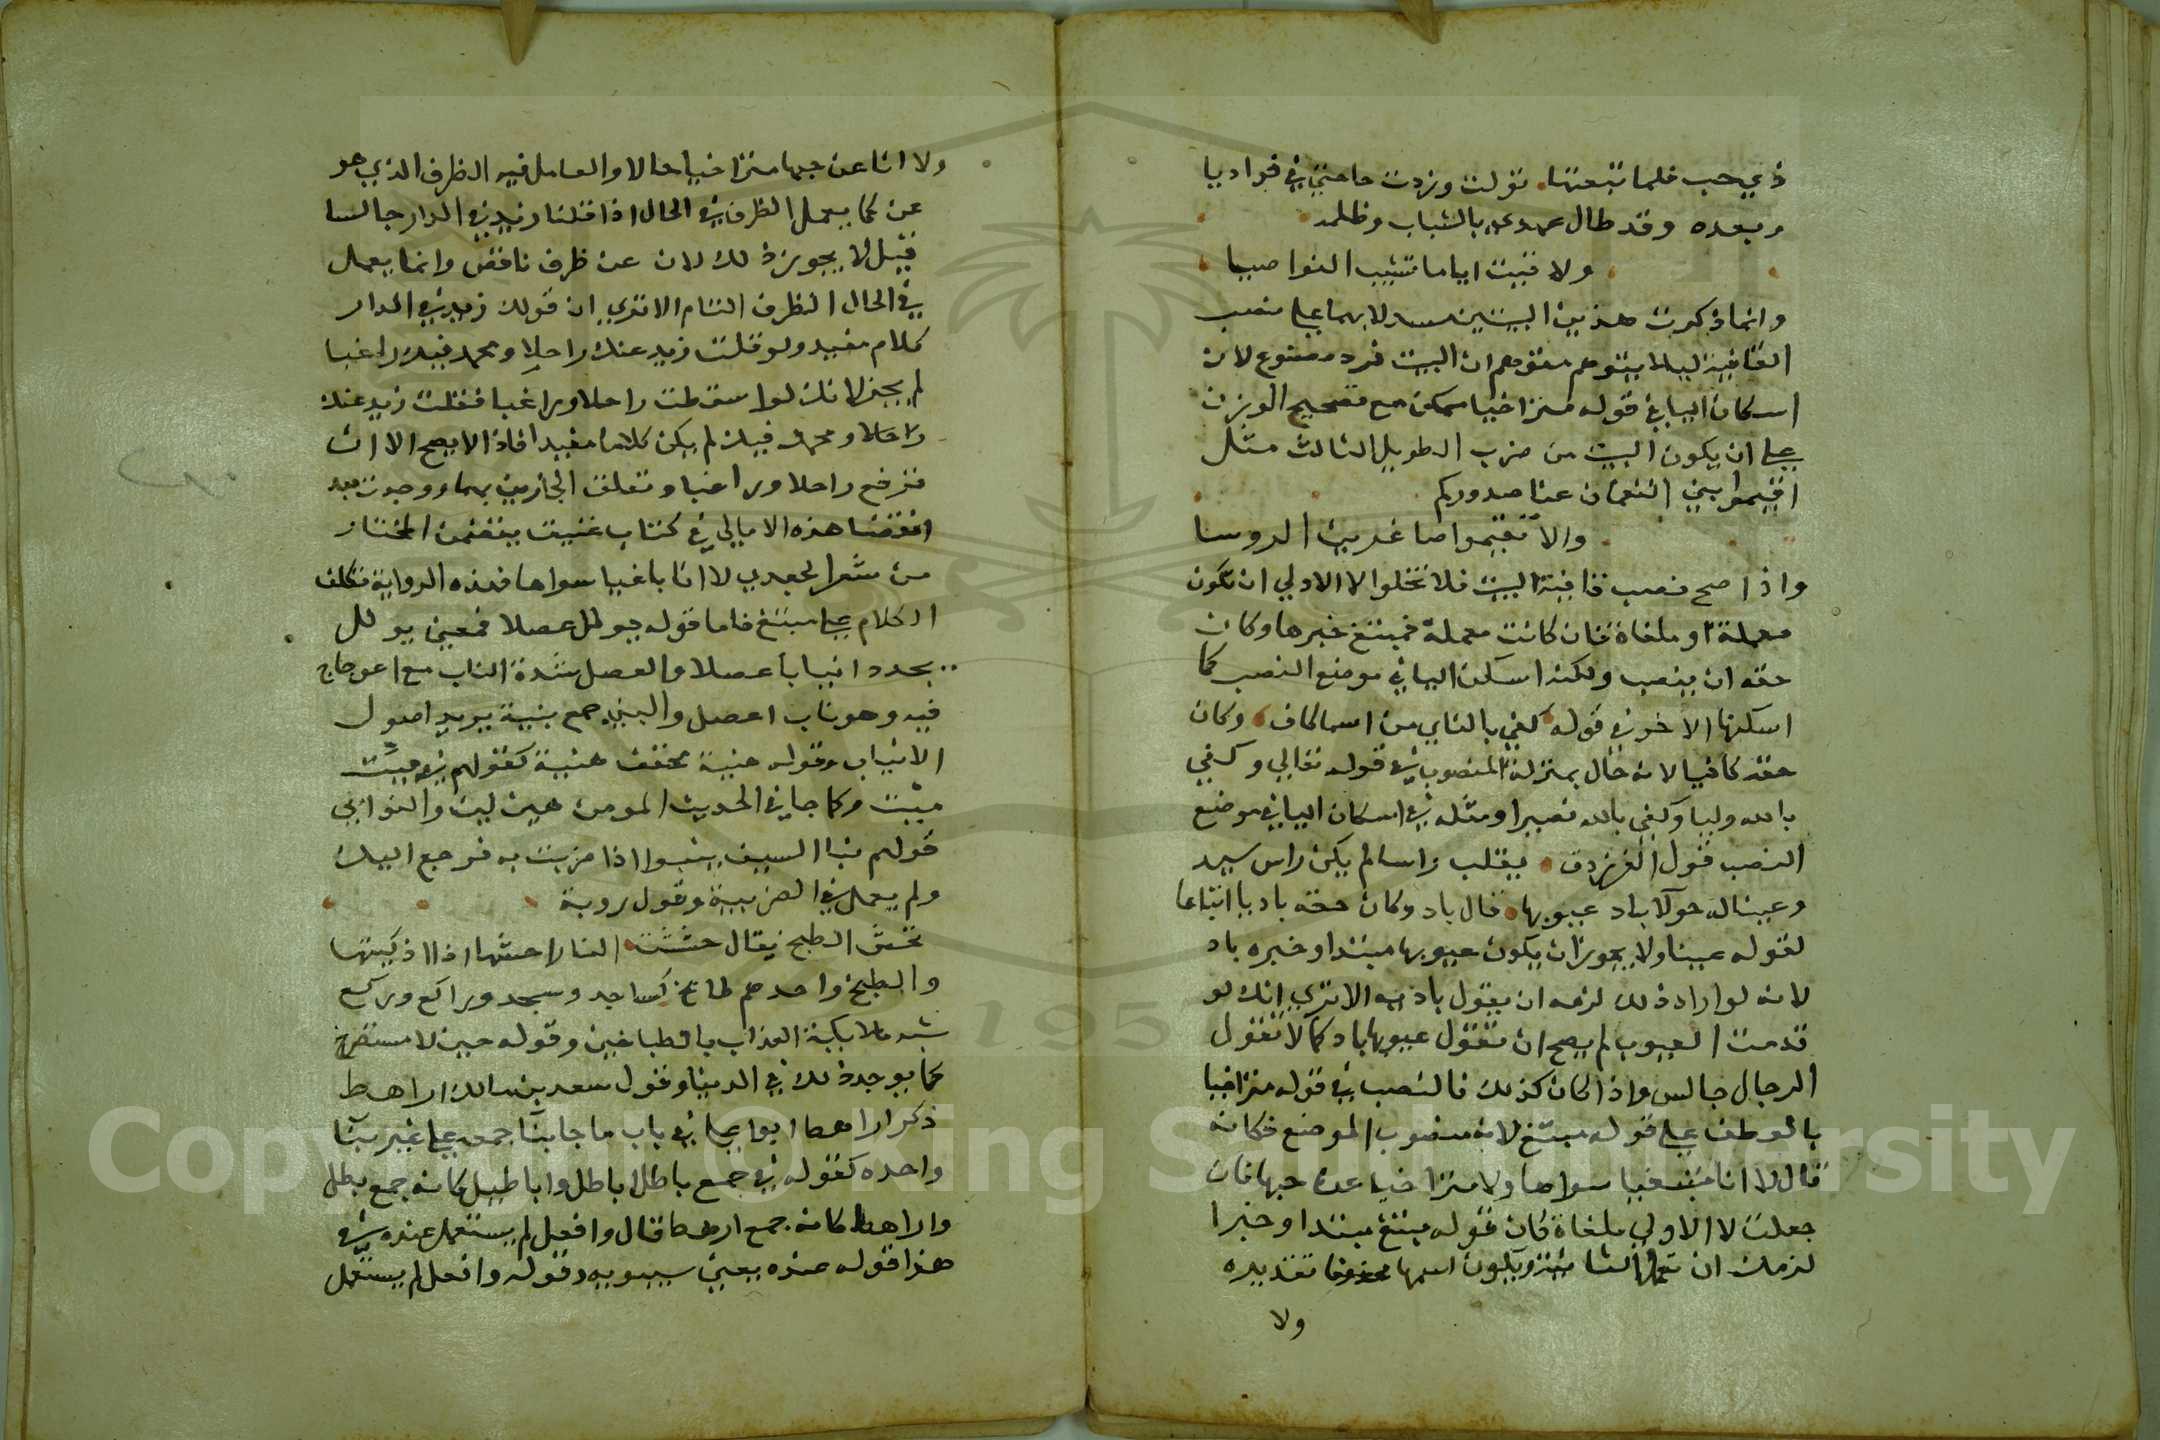 ذي حب فلما تبعتها تولت وردت حاجتي في فواديا
وبعده وقد طال عهدي بالشباب وظلمه
ولاقيت اياما تشيب النواصيا
وانما ذكرت هذين البيتين لاستدلا بهما علي نصب
القافية ليلا يتوهم متوهم ان البيت فرد مصنوع لان
اسكان اليا في قوله متراخيا ممكن مع تصحيح الوزن
علي ان يكون البيت من ضرب الطويل الثالث مثل
اقيموا بني النعمان عنا صدوركم
والا تقيموا صاغرين الروسا
واذا صح نصب قافية البيت فلا تخلوا لا الاولي ان تكون
معملة او ملغاة فان كانت معملة فمبتغ خبرها وكان
حقه ان ينصب ولكنه اسكن اليا في موضع النصب كما
اسكنها الاخر في قوله كفي بالناي من اسما كاف وكان
حقه كافيا لانه حال بمنزلة المنصوب في قوله تعالي وكفي
بالله وليا وكفي بالله نصيرا ومثله في اسكان اليا في موضع
النصب قول الفرزدق يقلب راسا لم يكن راس سيد
وعينا له حولا باد عيوبها قال باد وكان حقه باديا اتباعا
لقوله عينا ولا يجوز ان يكون عيوبها مبتدا وخبره باد
لانه لو اراد ذلك لزمه ان يقول بادية الا تري انك لو
قدمت العيوب لم يصح ان تقول عيوبها باد كما لا تقول
الرجال جالس واذا كان كذلك فالنصب في قوله متراخيا
بالعطف علي قوله مبتغ لانه منصوب الموضع فكانه
قال لا انا مبتغيا سواها ولا متراخيا عن حبها فان
جعلت لا الاولي ملغاة كان قوله مبتغ مبتدا وخبرا
لزمك ان تعمل الثانية ويكون اسمها محذوفا تقديره
ولا
ولا انا عن حبها متراخيا حالا والعامل فيه الظرف الذي هو
عن كما يعمل الظرف في الحال اذا قلنا زيد في الدار جالسا
قيل لا يجوز ذلك لان عن ظرف ناقص وانما يعمل
في الحال الظرف التام الا تري ان قولك زيد في الدار
كلام مفيد ولو قلت زيد عنك راحلا ومحمد فيك راغبا
لم يجز لانك لو اسقطت راحلا وراغبا فقلت زيد عنك
راحلا ومحمد فيك لم يكن كلاما مفيدا فاذا لا يصح الا ان
ترفع راحلا وراغبا وتعلق الجارين بهما ووجدت بعد
انقضا هذه الامالي في كتاب عتيق يتضمن المختار
من شعر الجعدي لا انا باغيا سواها فهذه الرواية تكلف
الكلام علي مبتغ فاما قوله يولل عصلا فمعني يولل
يحدد انيابا عصلا والعصل شدة الناب مع اعوجاج
فيه وهو ناب اعصل والبني جمع بنية يريد اصول
الانياب وقوله هنية مخفف هنية كقولهم في ميت
ميت وكما جا في الحديث المومن هين لين والنوابي
قولهم نبا السيف ينبوا اذا ضربت به فرجع اليك
ولم يعمل في الضريبة وقول روبة
تحش الطبخ يقال حششت النار احشها اذا اذكيتها
والطبخ واحدهم طابخ كساجد وسجد وراكع وركع
شبه ملايكة العذاب بالطباخين وقوله حين لا مستصرخ
كما يوجد ذلك في الدنيا وقول سعد بن مالك اراهط
ذكر اراهط ابو علي في باب ما جا بنا جمعه علي غير بنا
واحده كقوله في جمع باطل اباطل واباطيل كانه جمع ابطل
واراهط كانه جمع ارهط قال وافعل لم يستعمل عنده في
هذا قوله عنده يعني سيبويه وقوله وافعل لم يستعمل